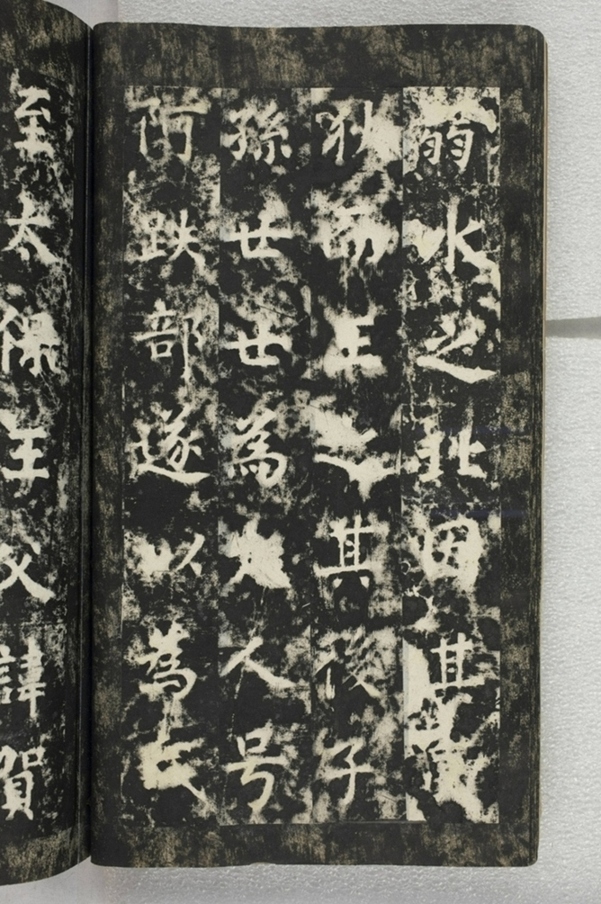 弱水之北因其
狄而王之其後子
孫世世為大人号
阿跌部遂以為氏
至太保王父諱賀